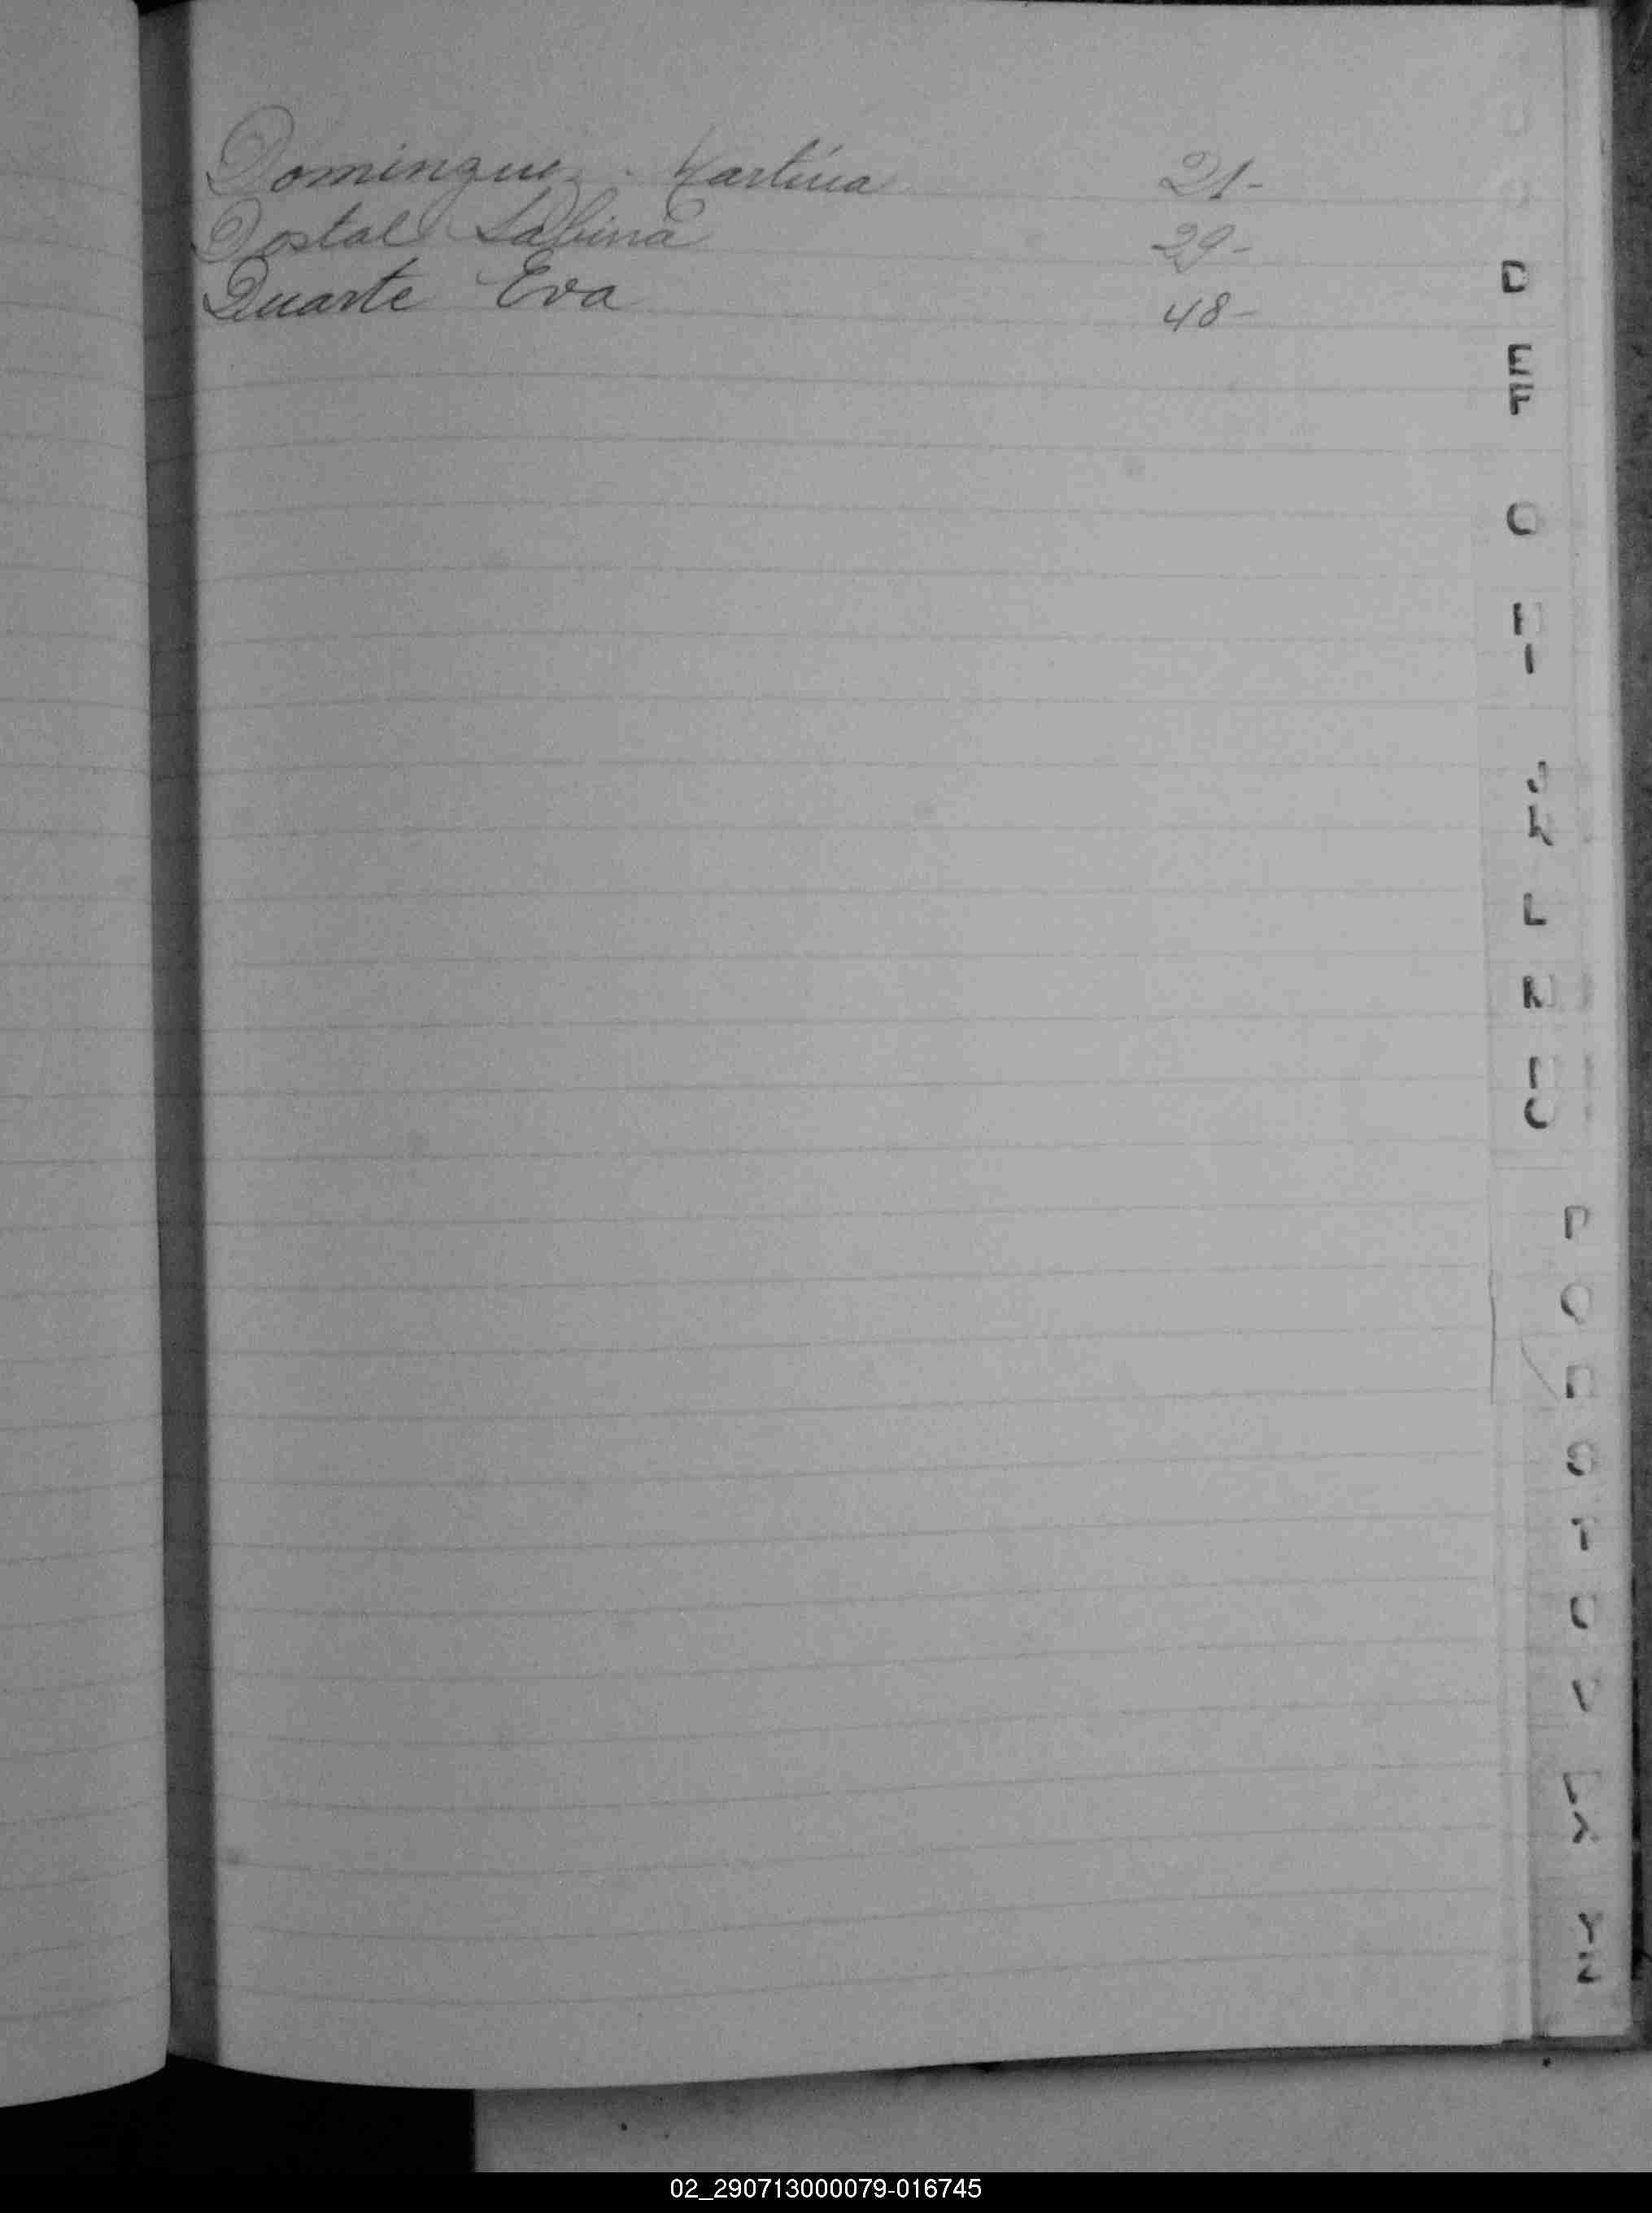 Dominguez . Martina 21-
Dostal Sabina 29-
Duarte Eva 48-
D
E
F
H
I
J
K
L
M
N
P
S
T
V
X
Y
Z
02_290713000079-016745